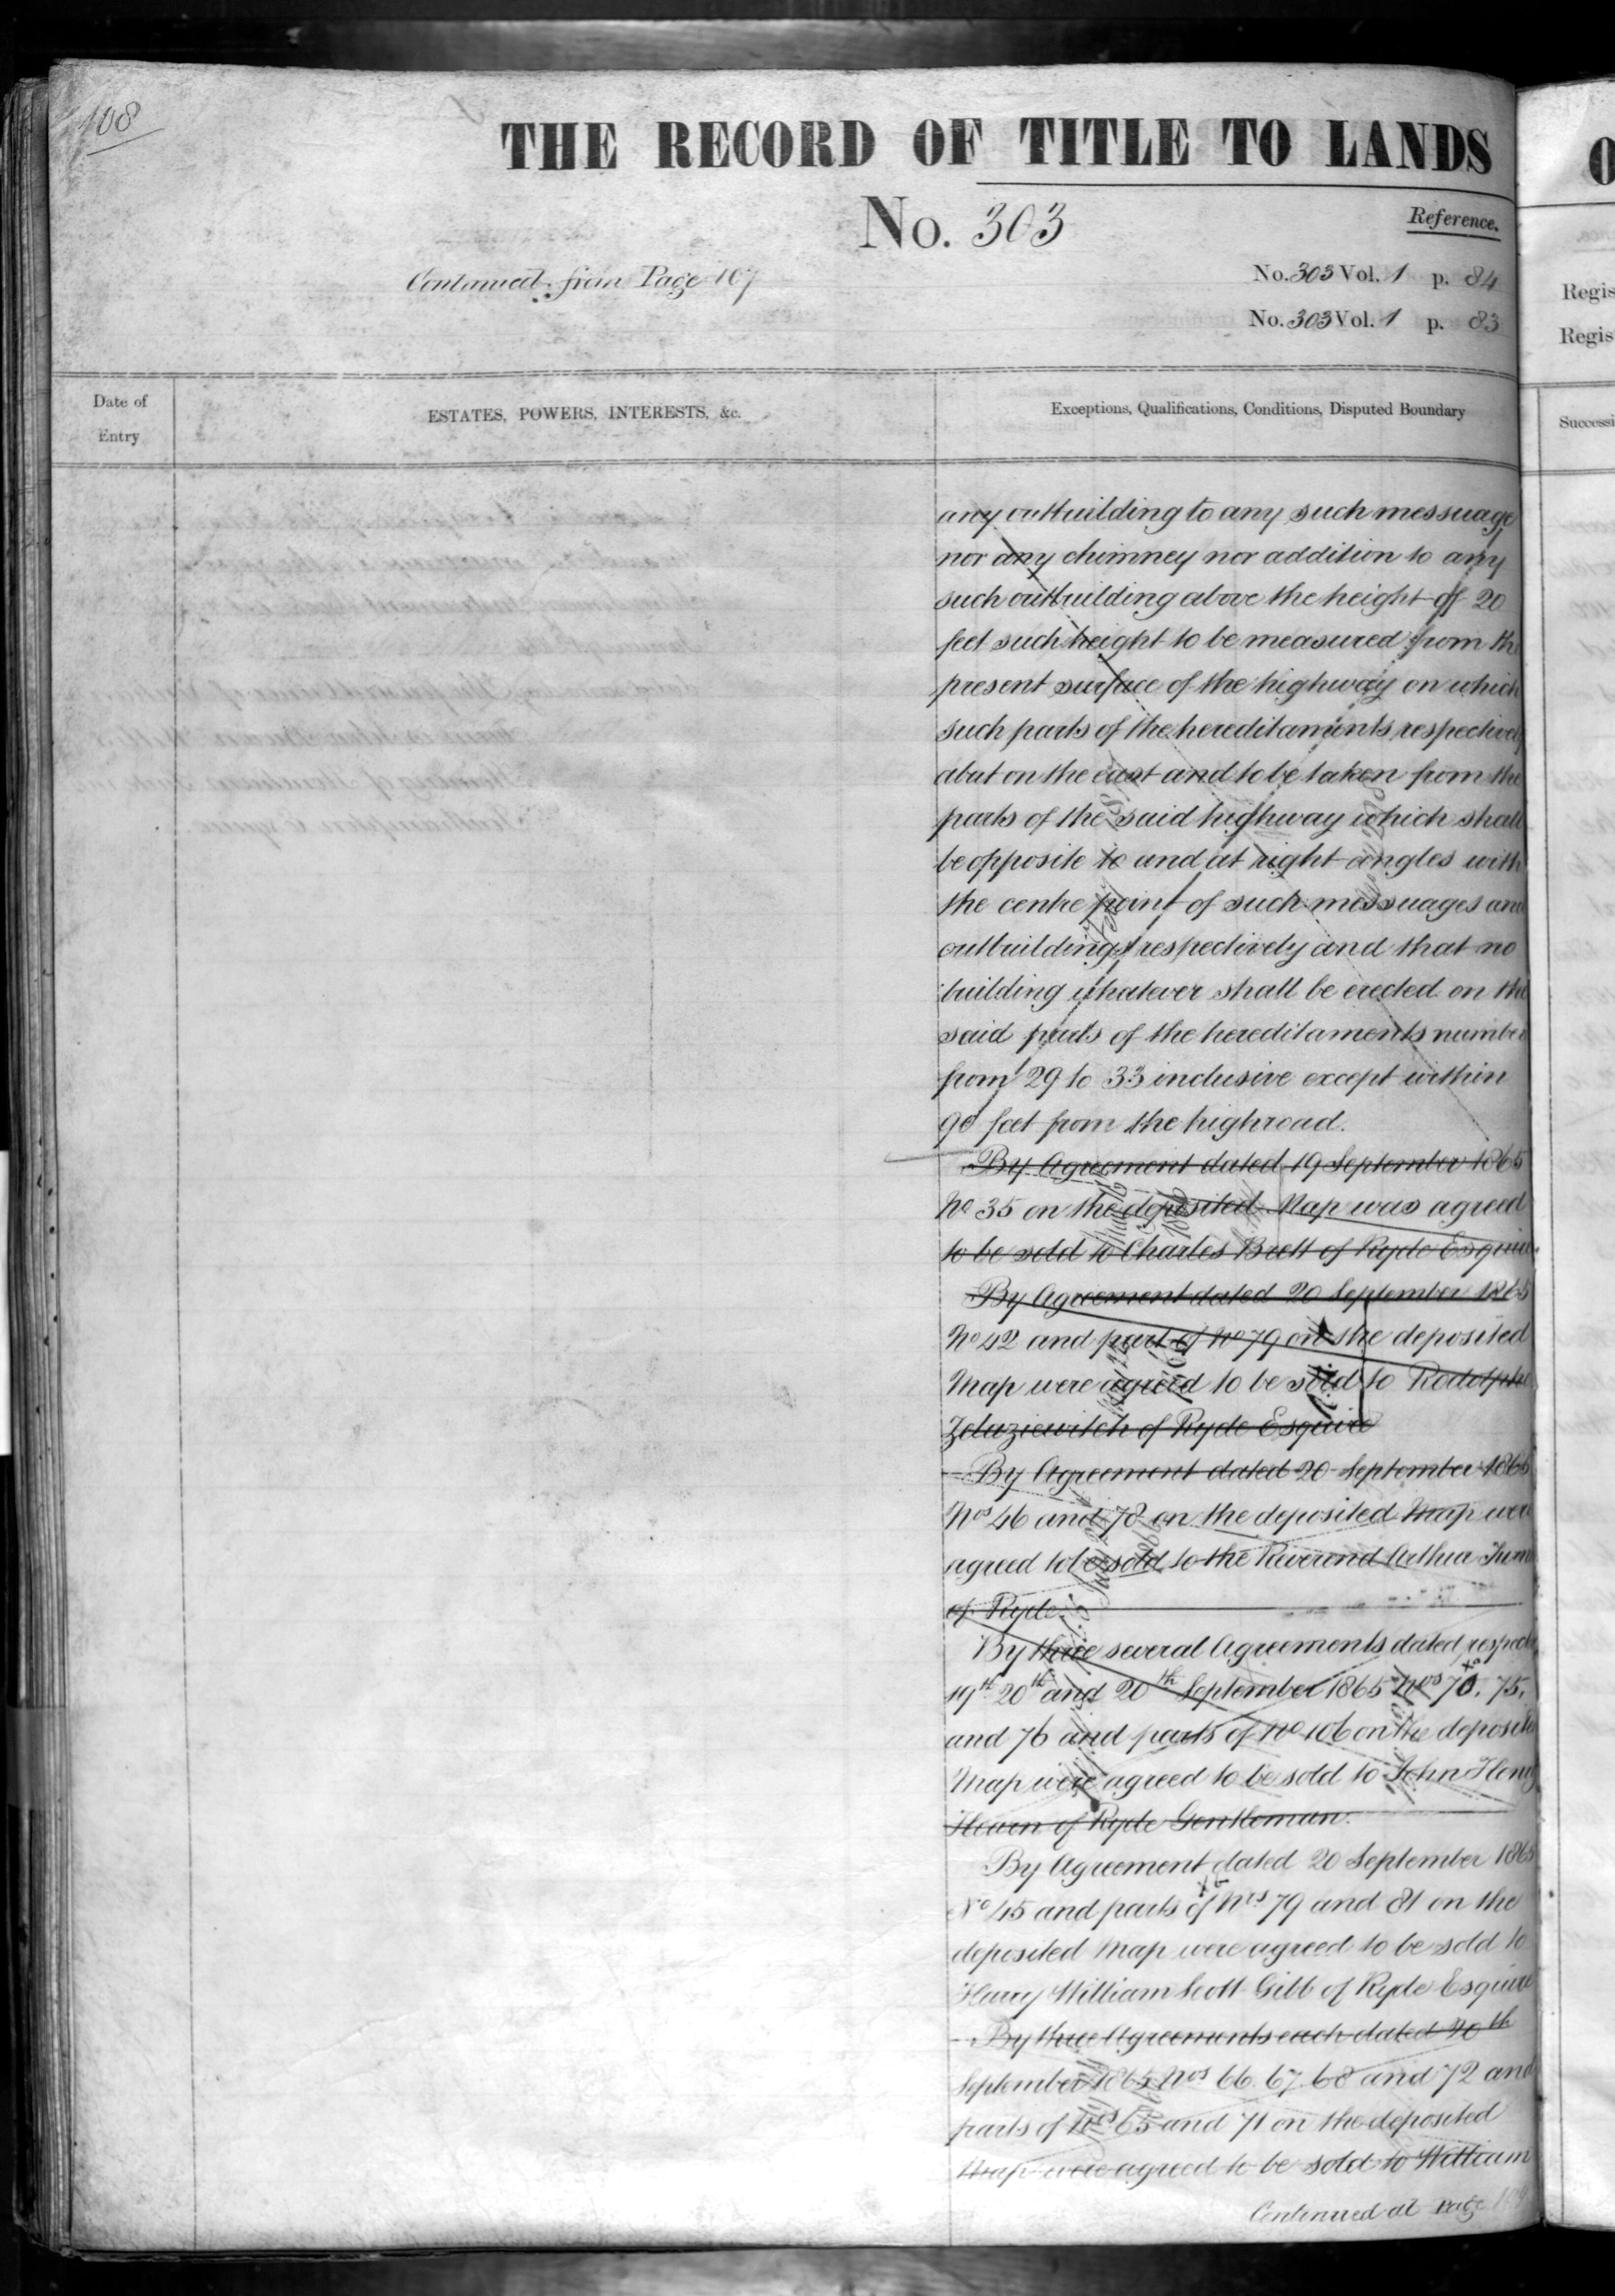 108
THE RECORD OF TITLE TO LANDS
No. 303
Reference.
Continued from Page 107
No. 303 Vol. 1 p. 84
No. 303 Vol. 1 p. 83
Date of
Entry
ESTATES, POWERS, INTERESTS, &c.
Exceptions, Qualifications, Conditions, Disputed Boundary
any outbuilding to any such messuage
nor any chimney nor addition to any
such outbuilding above the height of 20
feet such height to be measured from the
present surface of the highway on which
such parts of the hereditaments respectively
abut on the east and to be taken from the
parts of the said highway which shall
be opposite to and at right angles with
the centre point of such messuages and
outbuildings respectively and that no
building whatever shall be erected on the
said parts of the hereditaments number
from 29 to 33 inclusive except within
90 feet from the highroad.
By Agreement dated 19 September 1865
No 35 on the deposited Map was agreed
to be sold to Charles Brett of Ryde Esquire
By Agreement dated 20 September 1865
No 42 and part of No 79 on the deposited
Map were agreed to be sold to Rodolphe
Zelaziewitch of Ryde Esquire
By Agreement dated 20 September 1865
Nos 46 and 78 on the deposited Map were
agreed to be sold to the Reverend Arthur
of Ryde
By three several Agreements dated
19th 20th and 20th September 1865 Nos 70. 75.
and 76 and parts of No 106 on the deposited
Map were agreed to be sold to John Henry
of Ryde Gentleman.
By Agreement dated 20 September 1865
No 45 and parts of Nos 79 and 81 on the
deposited Map were agreed to be sold to
Harry William Scott Gibb of Ryde Esquire
By three Agreements each dated 20th
September 1865 Nos 66. 67. 68 and 72 and
parts of Nos 65 and 71 on the deposited
Map were agreed to be sold to William
Continued at Page
O
Regis
Regis
Successi